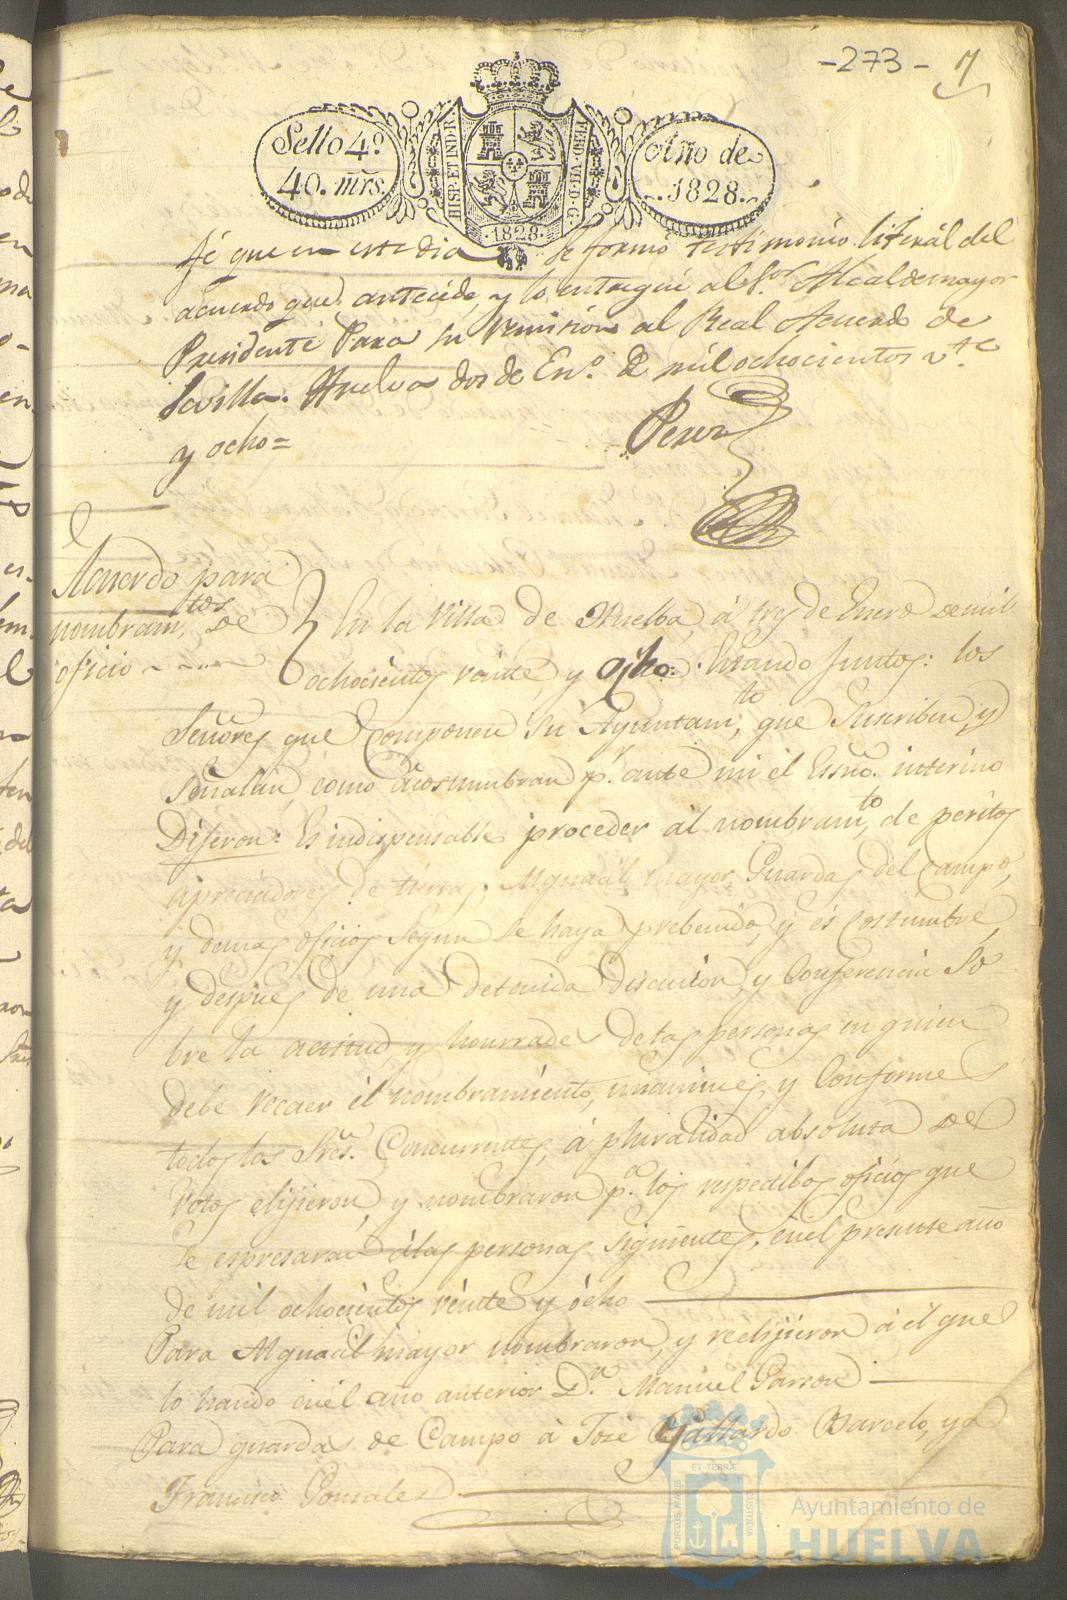 -273- 7
Sello 4º
40. mrs.
HISP. ET IND. R.
FERD. VII. D. G.
·1828·
Año de
1828.
fé que en este dia se formó testimonio literál del
acuerdo que antecede, y lo entregué al Sor. Alcalde mayor
Presidente Para su remisión al Real Acuerdo de
Sevilla. Huelva dos de Eno. de mil ochocientos vte.
y ocho=
Perez
Acuerdo para
nombramtos de
oficio
En la Villa de Huelba, á tres de Enero de mil
ochocientos veinte, y Ocho: Estando Juntos: los
Señores que Componen Su Ayuntamto, que Suscriben, y
Señalan, como acostumbran pr. ante mi el Essno. interino
Dijeron: Es indispensable proceder al nombramto, de peritos
apreciadores de tierras, Alguacil mayor, Guardas del Campo,
y demas oficios Segun se haya prebenido, y és Costumbre,
y despues de una detenida discucion, y Conferencia So
bre la actitud, y honrrades de las personas en quien
debe recaer el nombramiento, unanimes, y Conformes
todos los Sres. Concurrentes, á pluralidad absoluta de
Votos elijieron, y nombraron pa. los respectibos oficios que
Se espresaran á las personas Siguientes, en el presente año
de mil ochocientos veinte y ócho
Para Alguacil mayor nombraron, y reelijieron á el que
lo ha sido en el año anterior Dn. Manuel Garzon
Para guardas de Campo à Jose Gallardo Barcelo, y a
Francisco Gonzales
PORTUS MARIS
ET TERRÆ
CUSTODIA
Ayuntamiento de
HUELVA